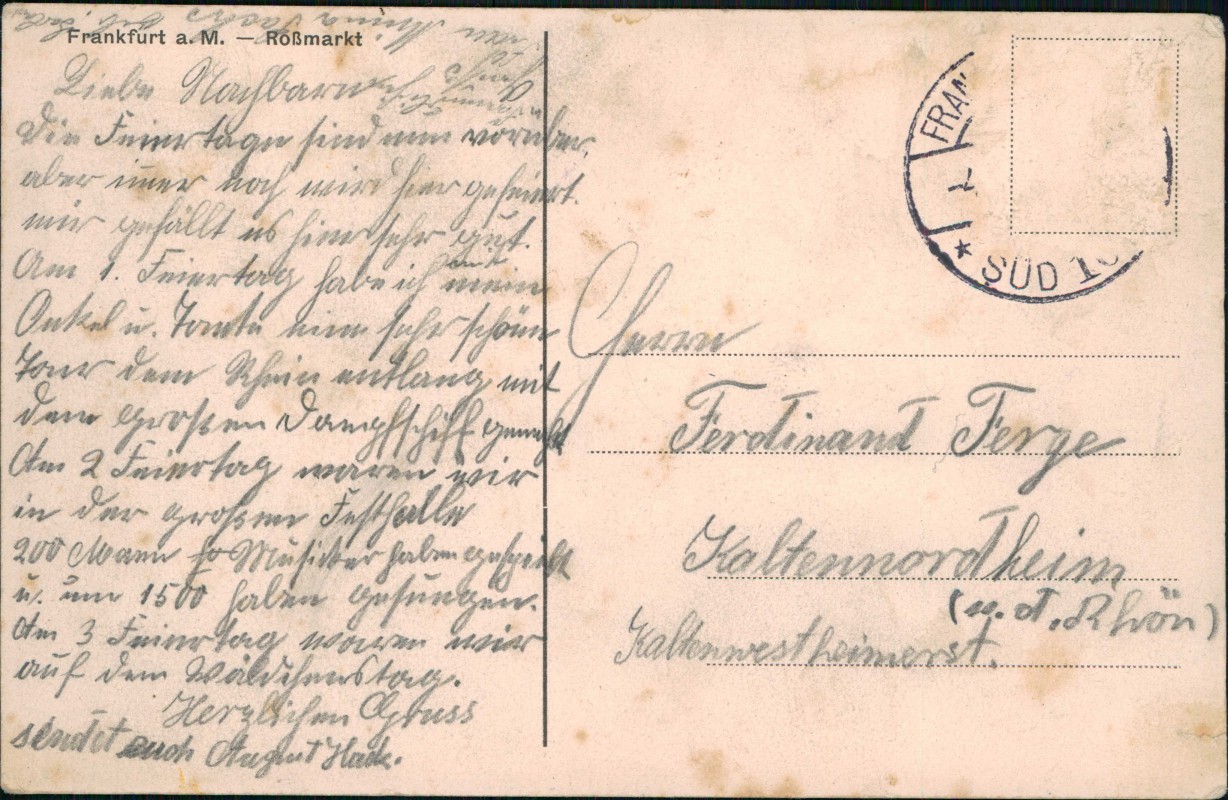 Frankfurt a. M. — Roßmarkt
Liebe Nachbarn
Die Feiertage sind nun vorüber,
aber imer noch wird hier gefeiert.
mir gefällt es hier sehr gut.
Am 1. Feiertag habe ich mit mein
Onkel u. Tante eine sehr schöne
Tour dem Rhein entlang mit
dem großen Dampfschiff gemacht
Am 2 Feiertag waren wir
in der grossen Festhalle
200 Mann Musiker haben gespielt
u. um 1500 haben gesungen.
Am 3 Feiertag waren wir
auf dem Wäldchenstag.
Herzlichen Gruss
sendet euch August Hack.
FRAN
SÜD 10
Herrn
Ferdinand Ferge
Kaltennordheim
(v. d. Rhön)
Kaltenwestheimerst.